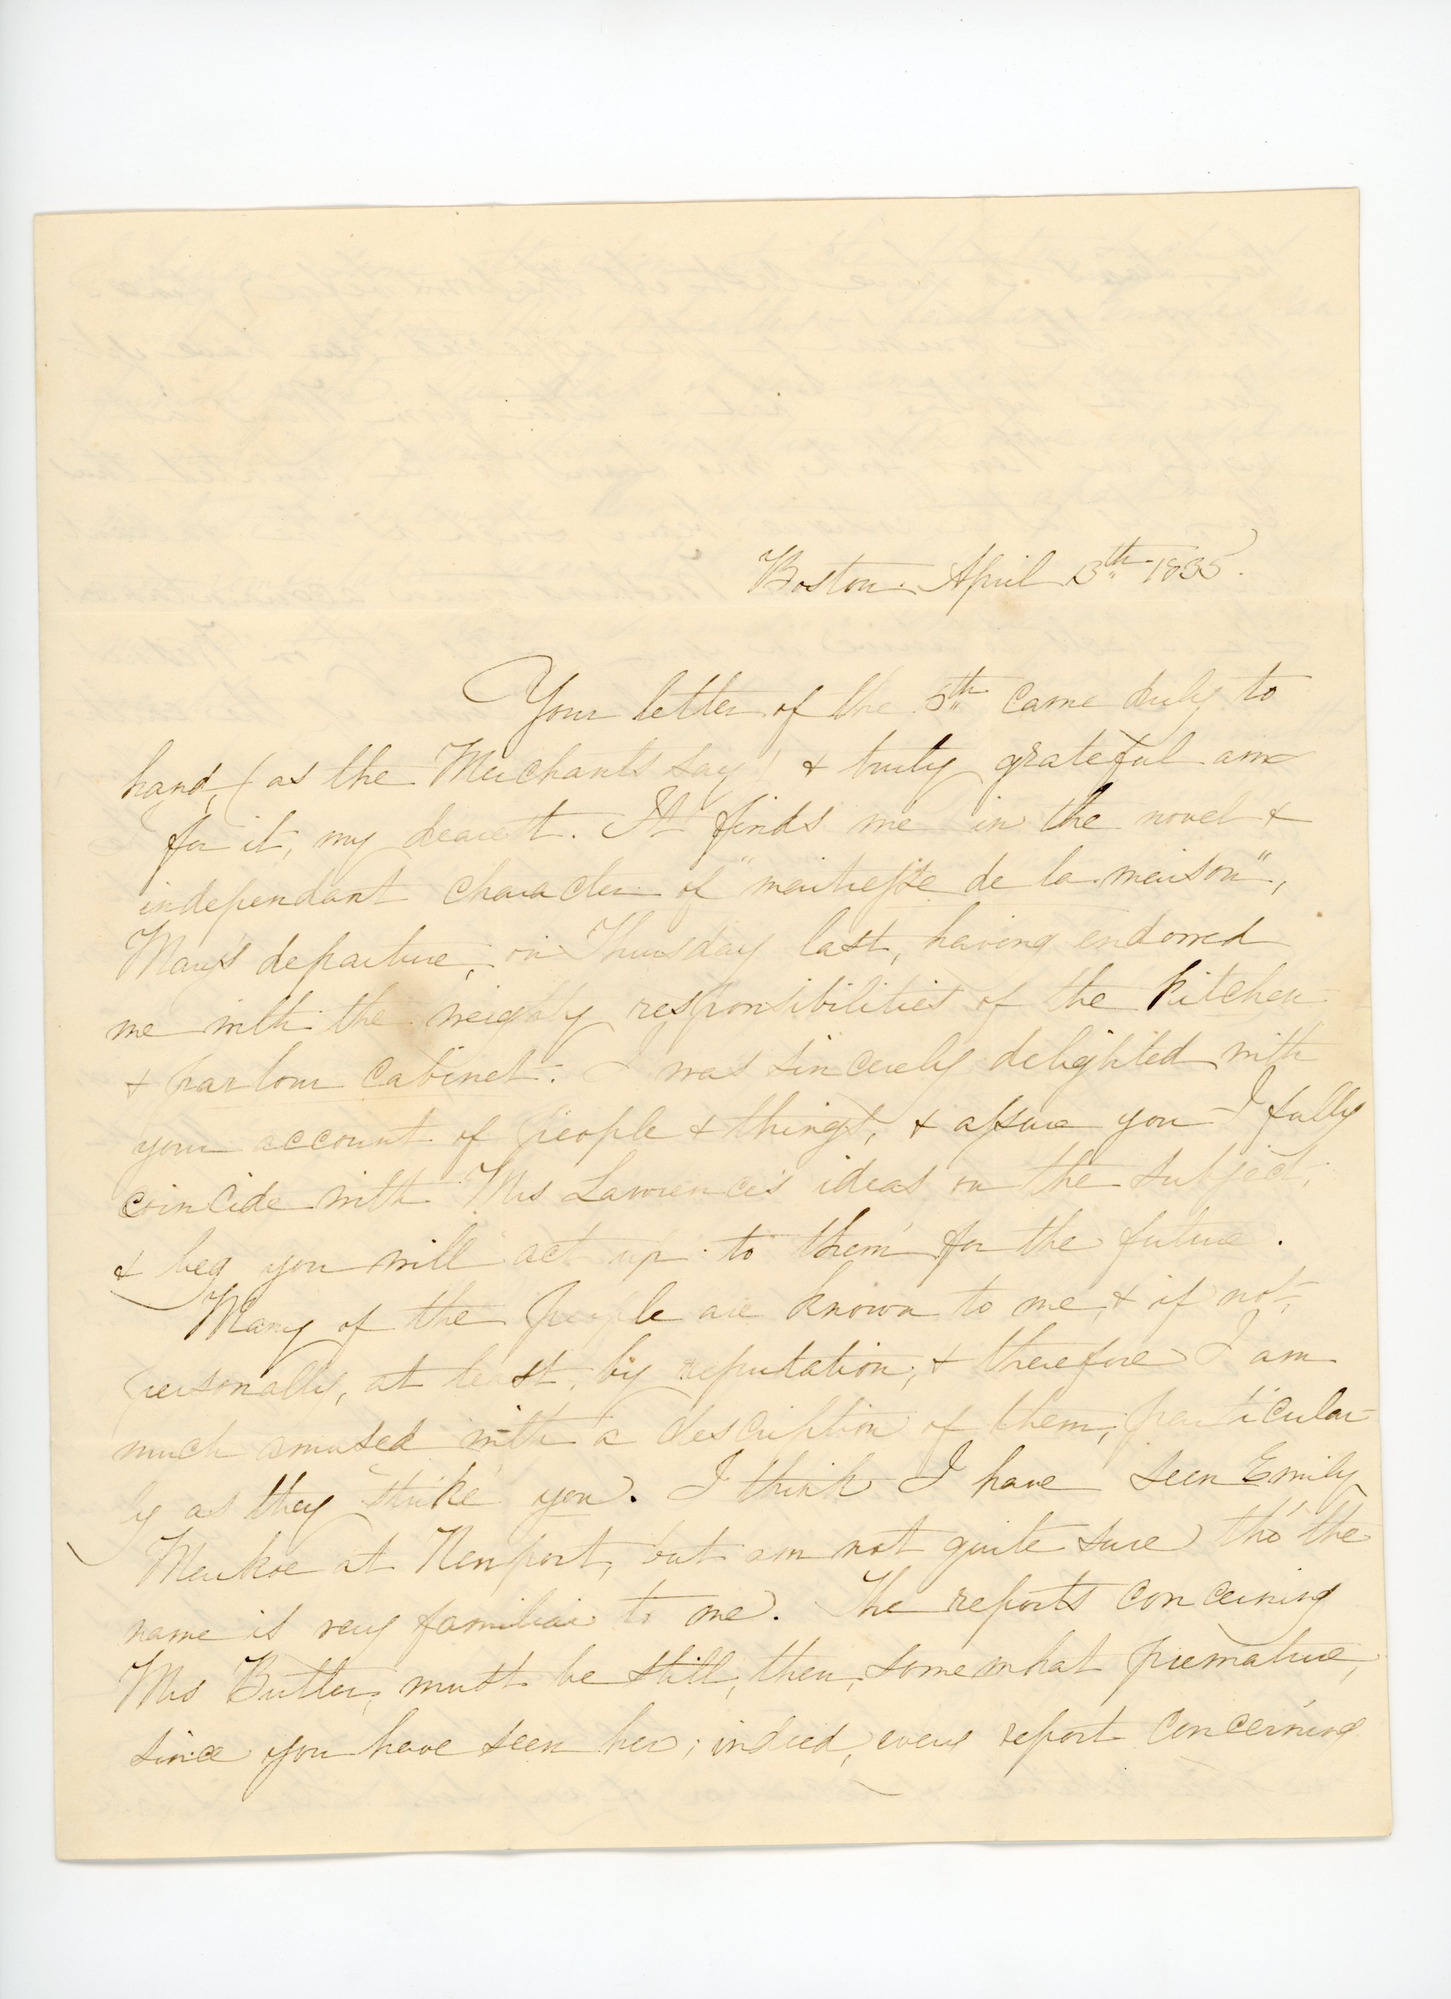 Boston. April 13th. 1835.
Your letter of the 5th came duly to
hand, (as the Merchants say) & truly grateful am
for it, my dearest. It finds me in the novel &
independant character of "maitresse de la maison",
Mary's departure, on Thursday last, having endorred
me with the weighty responsibilities of the kitchen
& parlour cabinet. I was sincerely delighted with
your account of people & things, & assure you I fully
coincide with Mrs Lawrence's ideas on the subject,
& beg you will act up to them for the future.
Many of the people are known to me, & if not,
personally, at least, by reputation, & therefore I am
much amused with a description of them, particular-
ly as they strike you. I think I have seen Emily
at Newport, but am not quite sure, tho' the
name is very familiar to me. The reports concerning
Mrs Butler, must be still, then, somewhat premature,
since you have seen her; indeed, every report concerning